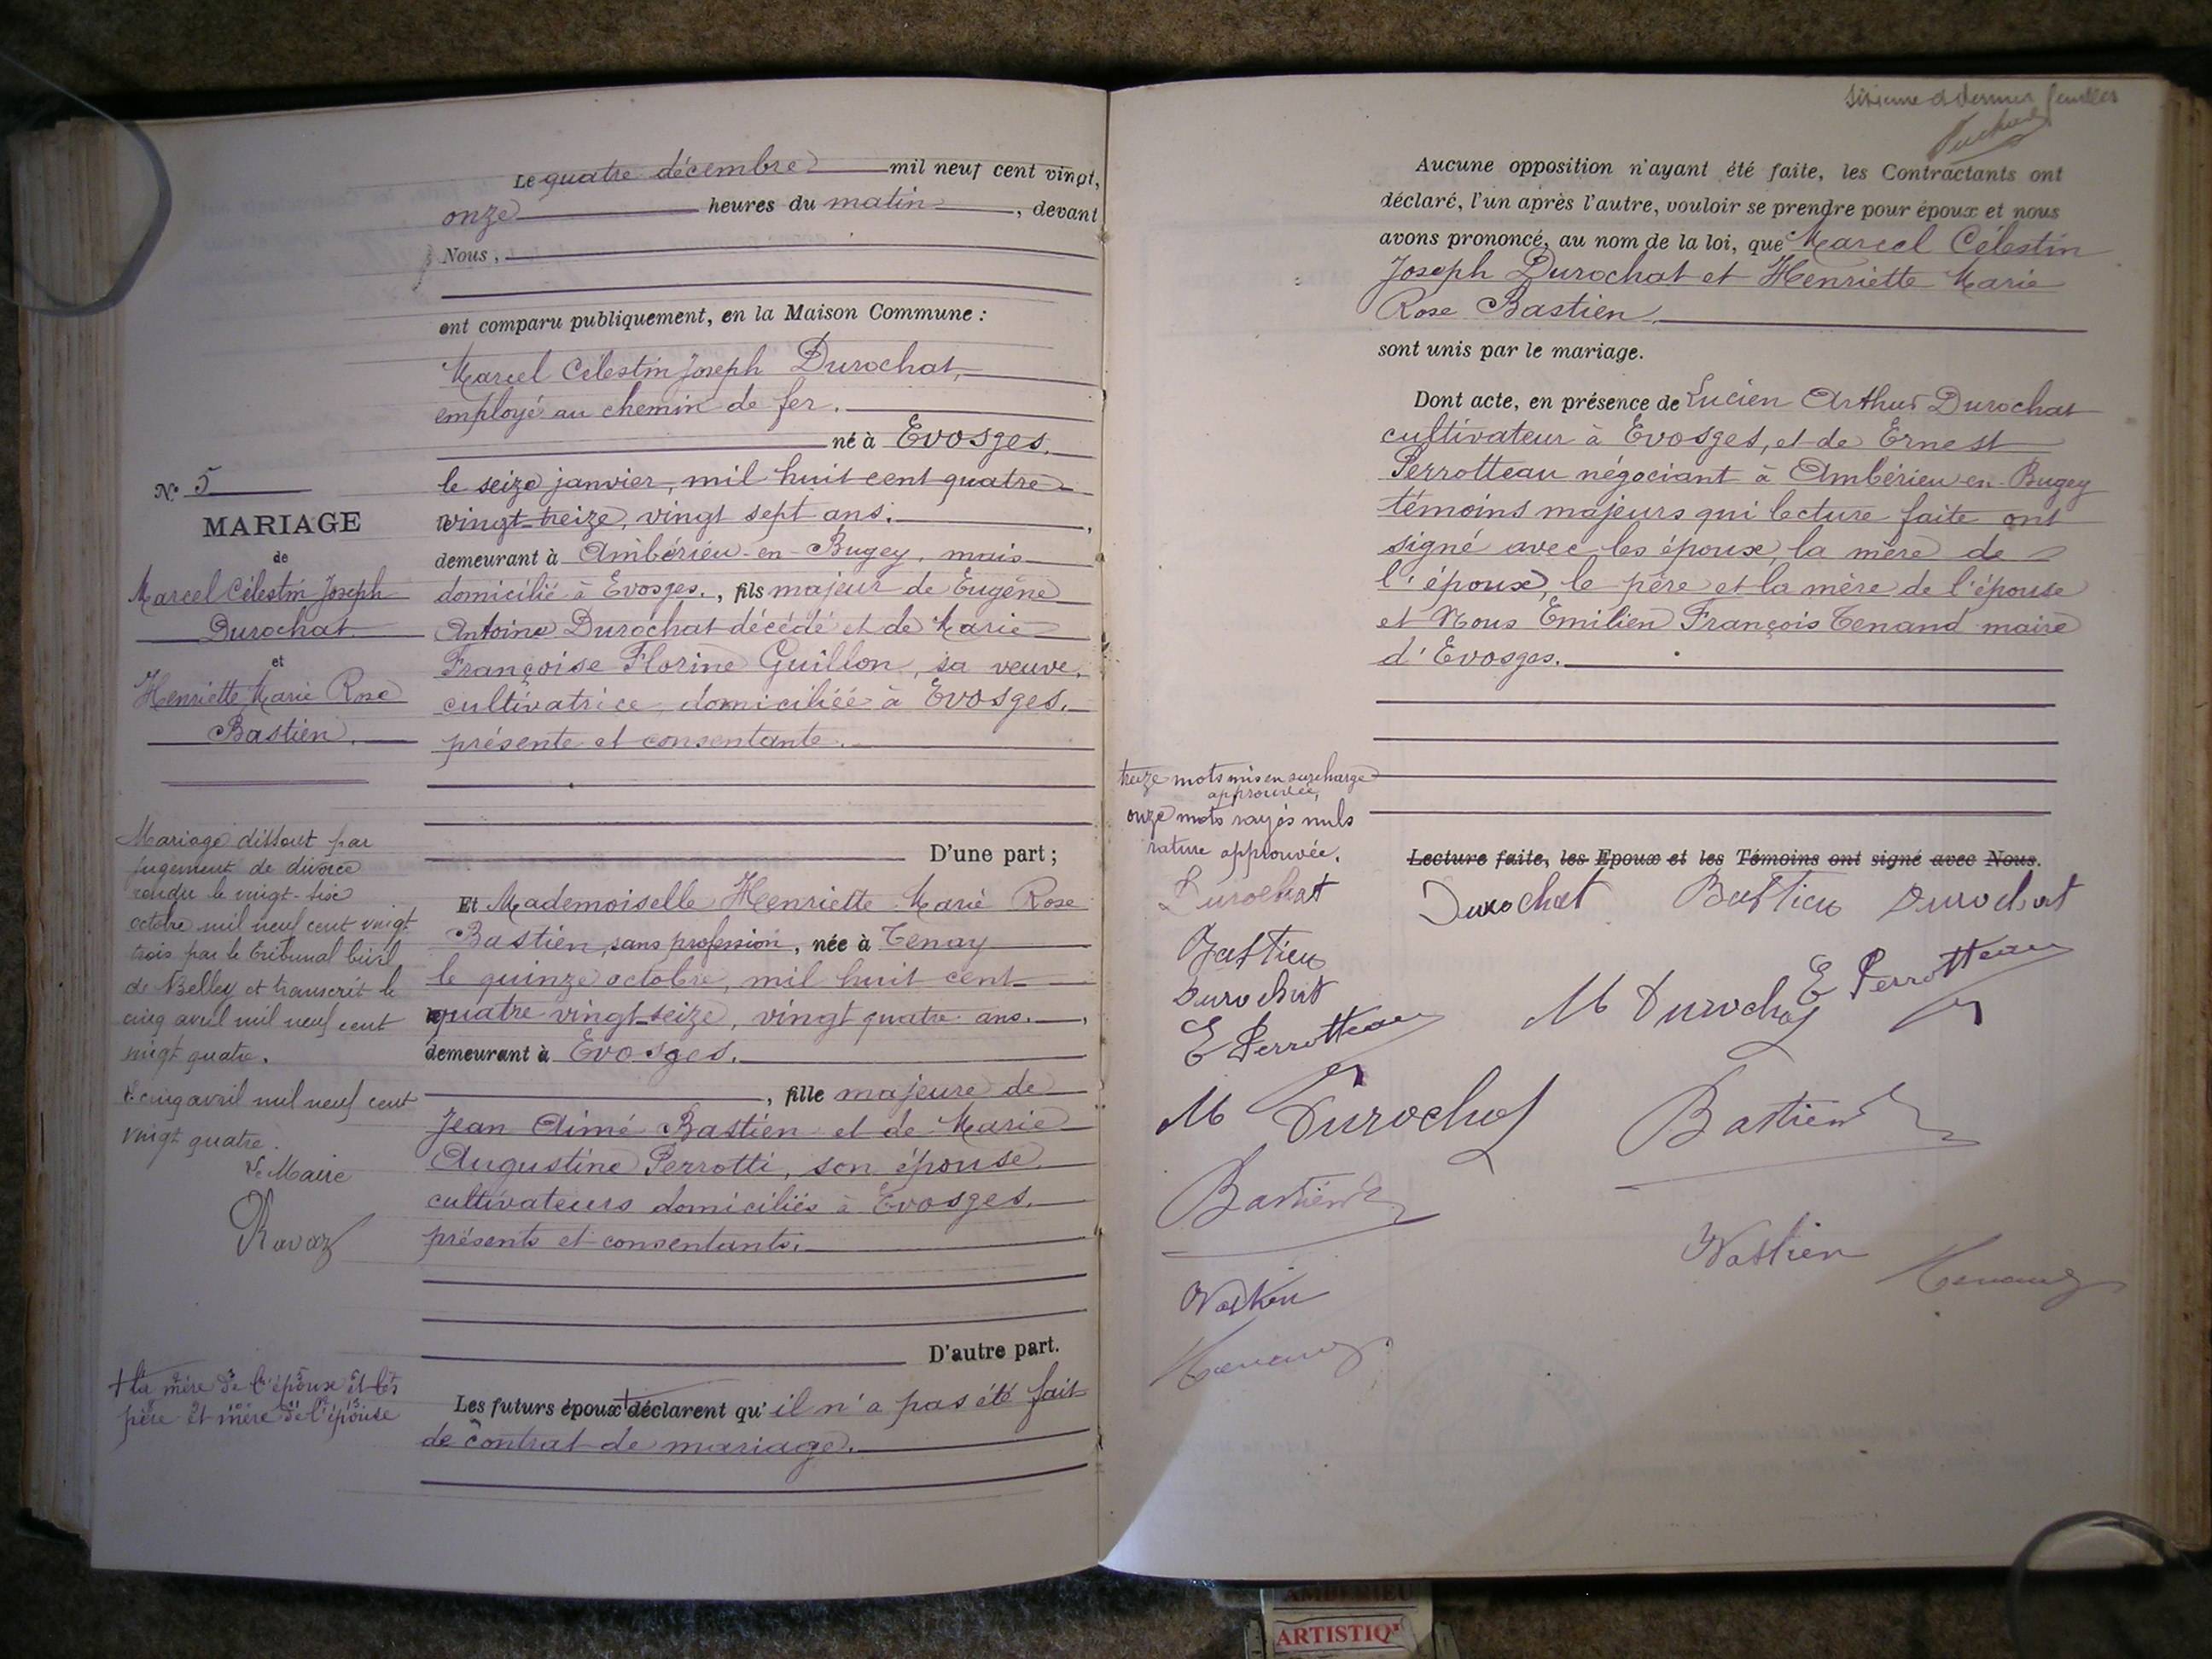 Le quatre décembre mil neuf cent vingt,
onze heures du matin, devant
Nous,
ont comparu publiquement, en la Maison Commune :
Marcel Célestin Joseph Durochat,
employé au chemin de fer.
né à Evosges.
le seize janvier, mil huit cent quatre
vingt-treize, vingt sept ans.
demeurant à Ambérieu-en-Bugey, mais
domicilié à Evosges., fils majeur de Eugène
Antoine Durochat décédé et de Marie
Françoise Florine Guillon, sa veuve,
cultivatrice domiciliéé à Evosges.
présente et consentante.
D'une part ;
Et Mademoiselle Henriette Marie Rose
Bastien, sans profession, née à Tenay
le quinze octobre, mil huit cent
quatre-vingt-seize, vingt quatre ans.
demeurant à Evosges.
, fille majeure de
Jean Aimé Bastien et de Marie
Augustine Perrotti, son épouse
cultivateurs domiciliés à Evosges.
présents et consentants.
D'autre part.
Les futurs époux + déclarent qu' il n'a pas été fait
de contrat de mariage.
N° 5
MARIAGE
de
Marcel Célestin Joseph
Durochat
et
Henriette Marie Rose
Bastien.
Mariage dissout par
jugement de divorce
rendu le vingt-six
octobre mil neuf cent vingt
trois par le tribunal civil
de Belley et transcrit le
cinq avril mil neuf cent
vingt quatre.
Le cinq avril mil neuf cent
vingt quatre.
Le Maire
Ravaz
+ la mère de l'époux et les
père et mère de l'épouse
feuillet
Aucune opposition n'ayant été faite, les Contractants ont
déclaré, l'un après l'autre, vouloir se prendre pour époux et nous
avons prononcé, au nom de la loi, que Marcel Célestin
Joseph Durochat et Henriette Marie
Rose Bastien
sont unis par le mariage.
Dont acte, en présence de Lucien Arthur Durochat
cultivateur à Evosges, et de Ernest
Perrotteau négociant à Ambérieu-en-Bugey
témoins majeurs qui lecture faite ont
signé avec les époux, la mère de
l'époux, le père et la mère de l'épouse
et Nous Emilien François Tenand maire
d'Evosges.
treize mots mis en surcharge
approuvée,
onze mots rayés nuls
rature approuvée.
Lecture faite, les Epoux et les Témoins ont signé avec Nous.
Durochat Bastien Durochat
E Perrotteau
M Durochat
Bastien
Bastien
Tenand
Durochat
Bastien
Durochat
E Perrotteau
M Durochat
Bastien
Bastien
Tenand
AMBERIEU
ARTISTIQ